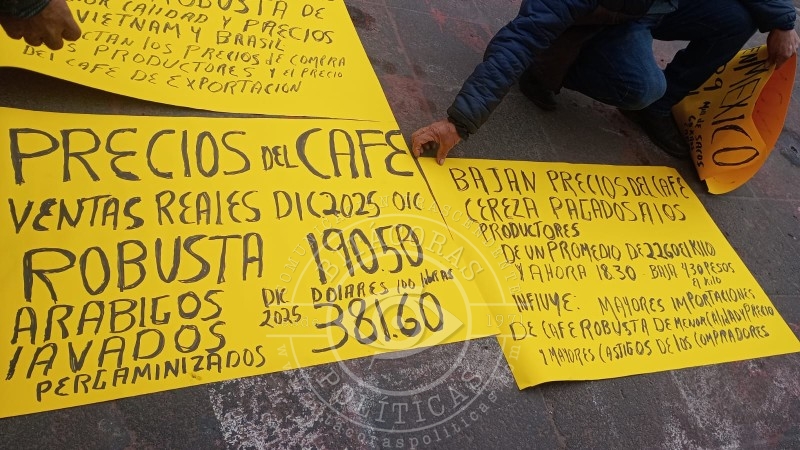 ROBUSTA DE
CALIDAD Y PRECIOS
VIETNAM Y BRASIL
LOS PRECIOS DE COMPRA
PRODUCTORES Y EL PRECIO
DEL CAFE DE EXPORTACION
PRECIOS DEL CAFE
VENTAS REALES DIC 2025 OIC
ROBUSTA 190.50
DOLARES 100 libras
ARABIGOS DIC 2025 381.60
LAVADOS
PERGAMINIZADOS
BAJAN PRECIOS DEL CAFE
CEREZA PAGADOS A LOS
PRODUCTORES
DE UN PROMEDIO DE 22.60 El KILO
Y AHORA 18.30 BAJA 4.30 PESOS
El KILO
INFLUYE: MAYORES IMPORTACIONES
DE CAFE ROBUSTA DE MENOR CALIDAD Y PRECIO
Y MAYORES CASTIGOS DE LOS COMPRADORES
MEXICO
BITÁCORAS
POLÍTICAS